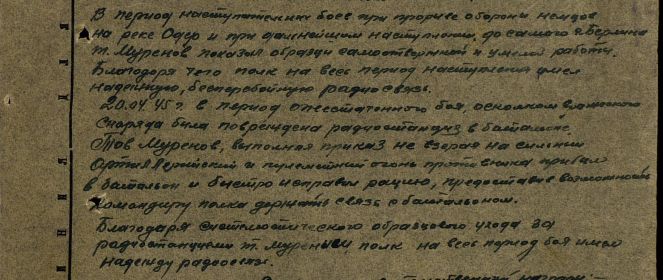 В период наступательных боев при прорыве обороны немцов
на реке Одер и при дальнейшом наступлении, до самого г. Берлина
т. Муренов показал образци самоотвержиной и умелой работы.
Благодоря чего полк на весь период наступления имел
надежную, бесперебойную радиосвязь.
20.04.45 г. в период ожесточенного боя, осколком вражеского
снаряда была повреждена радиостанция в баталионе.
Тов Муренов, выполная приказ не взирая на сильний
Артиллерийский и пулеметний огонь противника прибыл
в батальон и быстро исправил рацию, предоставив возможность
командиру полка держать связь с батальоном.
Благодаря систематического образцового ухода за
радиостанциями т. Муреным, полк на весь период боя имел
надежну радиосвязь.